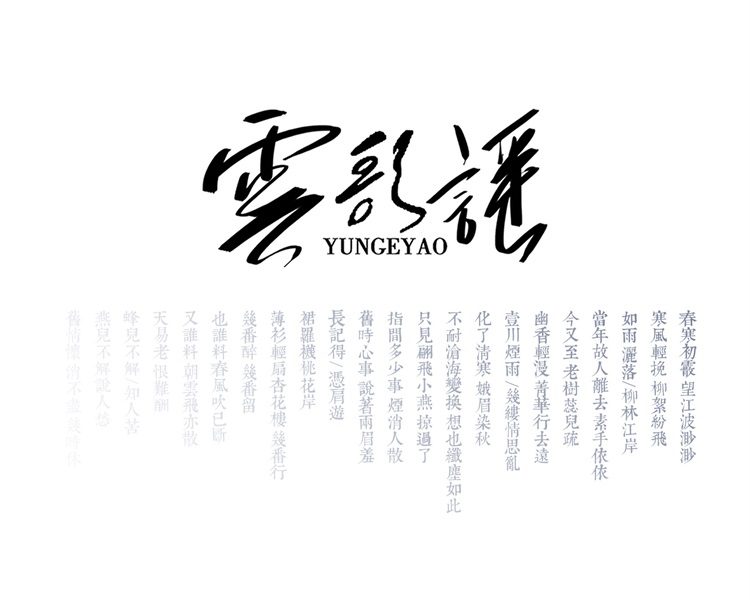 雲歌謠
YUNGEYAO
春寒初霰 望江波渺渺
寒風輕挽 柳絮紛飛
如雨灑落/柳林江岸
當年故人離去素手依依
今又至 老樹蕊兒疏
幽香輕漫 菁華行去遠
壹川煙雨/幾縷情思亂
化了清寒 娥眉染秋
不耐滄海變換 想也纖塵如此
只見翩飛小燕 掠過了
指間多少事 煙消人散
舊時心事 說着兩眉羞
長記得/憑肩遊
裙羅襪桃花岸
薄衫輕扇杏花樓 幾番行
幾番醉 幾番留
也誰料春風吹已斷
又誰料 朝雲飛亦散
天易老 恨難酬
蜂兒不解/知人苦
燕兒不解說人愁
舊情懷 消不盡 幾時休